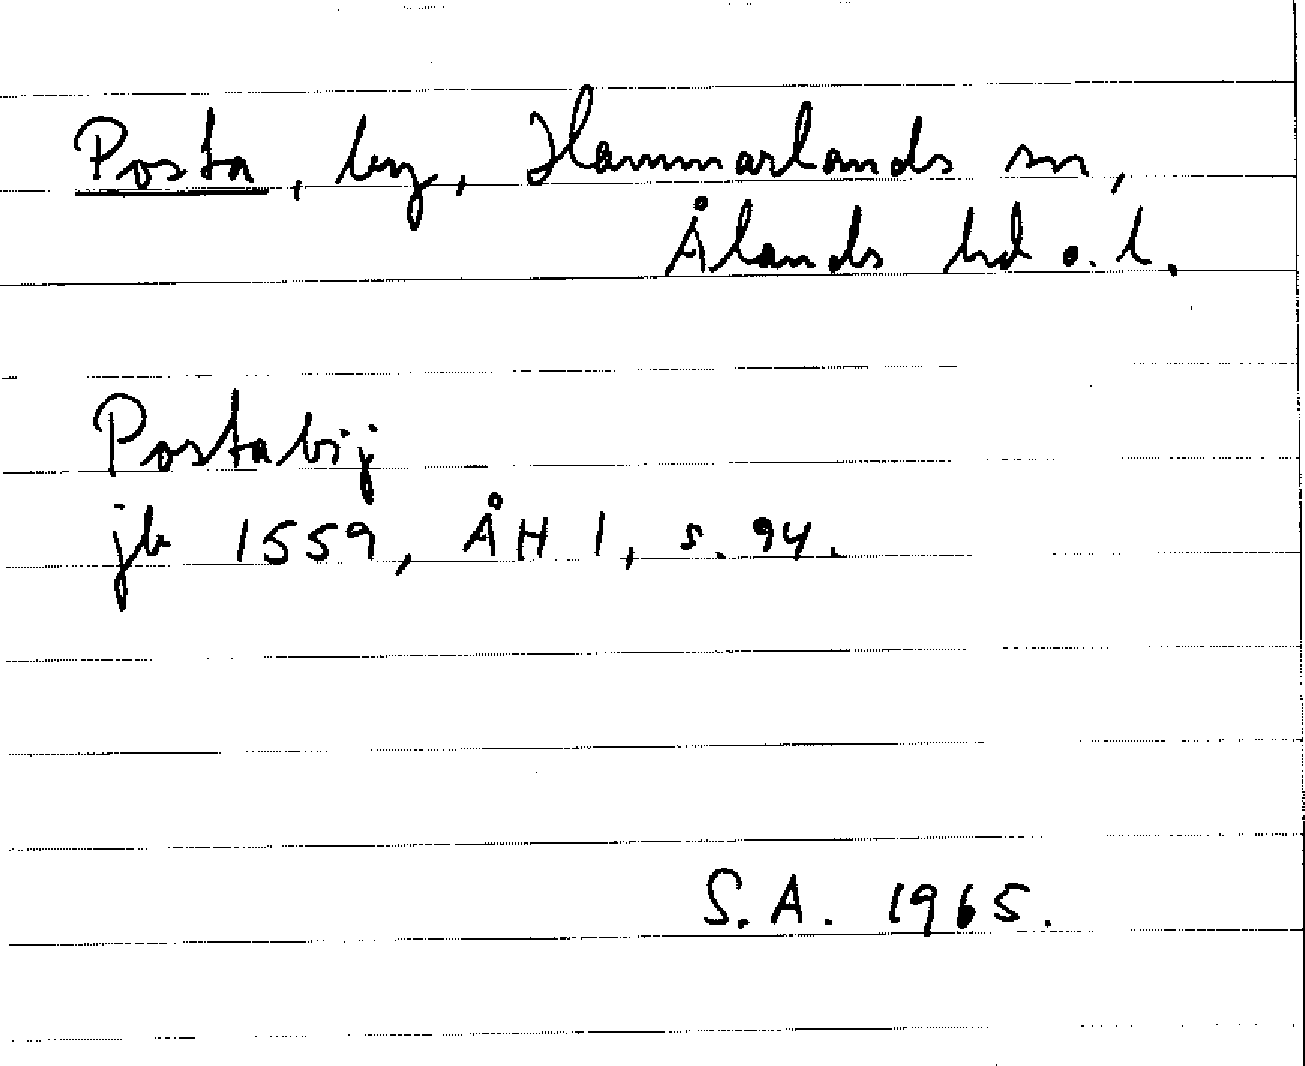 Posta, by, Hammarlands sn,
Ålands hd o. l.
Postabij
jb 1559, ÅH 1, s. 94.
S.A. 1965.